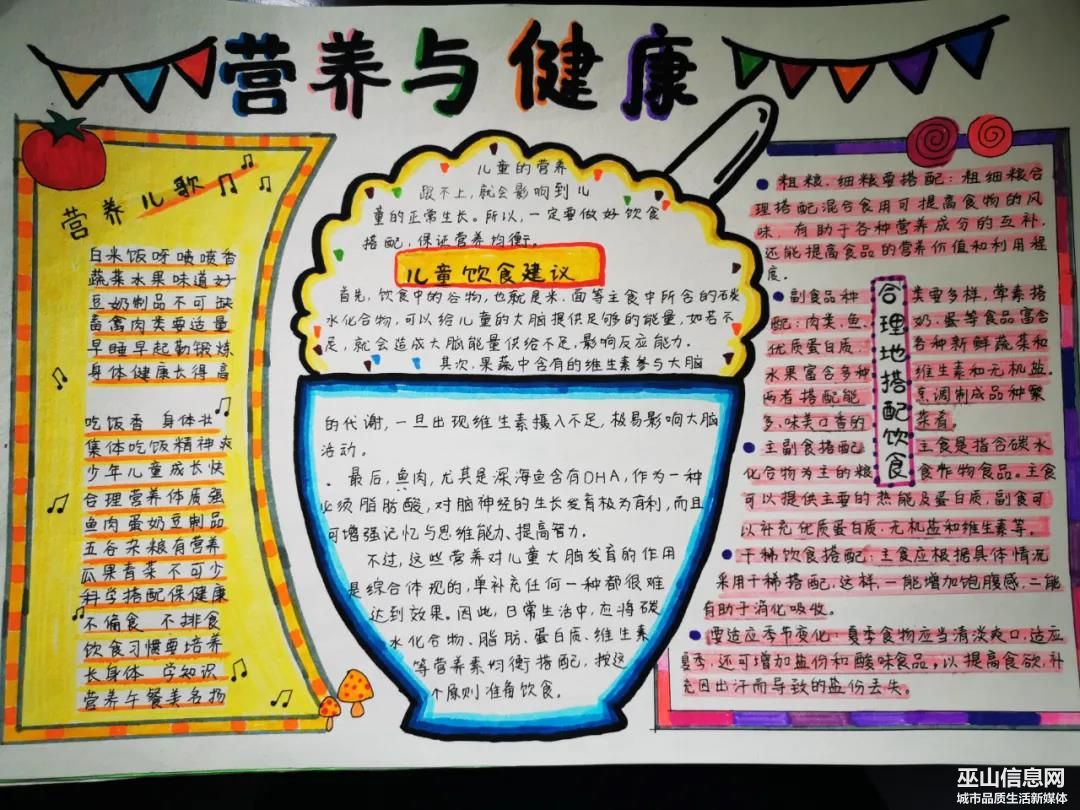 营养与健康
营养儿歌
白米饭呀喷喷香
蔬菜水果味道好
豆奶制品不可缺
畜禽肉类要适量
早睡早起勤锻炼
身体健康长得高
吃饭香 身体壮
集体吃饭精神爽
少年儿童成长快
合理营养体质强
鱼肉蛋奶豆制品
五谷杂粮有营养
瓜果青菜不可少
科学搭配保健康
不偏食 不排食
饮食习惯要培养
长身体 学知识
营养午餐美名扬
儿童的营养
跟不上,就会影响到儿
童的正常生长。所以,一定要做好饮食
搭配,保证营养均衡。
儿童饮食建议
首先,饮食中的谷物,也就是米、面等主食中所含的碳
水化合物,可以给儿童的大脑提供足够的能量,如若不
足,就会造成大脑能量供给不足,影响反应能力。
其次,果蔬中含有的维生素参与大脑
的代谢,一旦出现维生素摄入不足,极易影响大脑
活动。
最后,鱼肉,尤其是深海鱼含有DHA,作为一种
必须脂肪酸,对脑神经的生长发育极为有利,而且
可增强记忆与思维能力、提高智力。
不过,这些营养对儿童大脑发育的作用
是综合体现的,单补充任何一种都很难
达到效果。因此,日常生活中,应将碳
水化合物、脂肪、蛋白质、维生素
等营养素均衡搭配,按这
个原则准备饮食。
合理地搭配饮食
粗粮、细粮要搭配:粗细粮合
理搭配混合食用可提高食物的风
味,有助于各种营养成分的互补,
还能提高食品的营养价值和利用程
度。
副食品种类要多样,荤素搭
配:肉类、鱼、奶、蛋等食品富含
优质蛋白质,各种新鲜蔬菜和
水果富含多种维生素和无机盐。
两者搭配能烹调制成品种繁
多,味美口香的菜肴。
主副食搭配:主食是指含碳水
化合物为主的粮食作物食品。主食
可以提供主要的热能及蛋白质,副食可
以补充优质蛋白质、无机盐和维生素等。
干稀饮食搭配:主食应根据具体情况
采用干稀搭配,这样,一能增加饱腹感,二能
有助于消化吸收。
要适应季节变化:夏季食物应当清淡爽口,适应
夏季,还可增加盐份和酸味食品,以提高食欲,补
充因出汗而导致的盐份丢失。
巫山信息网
城市品质生活新媒体